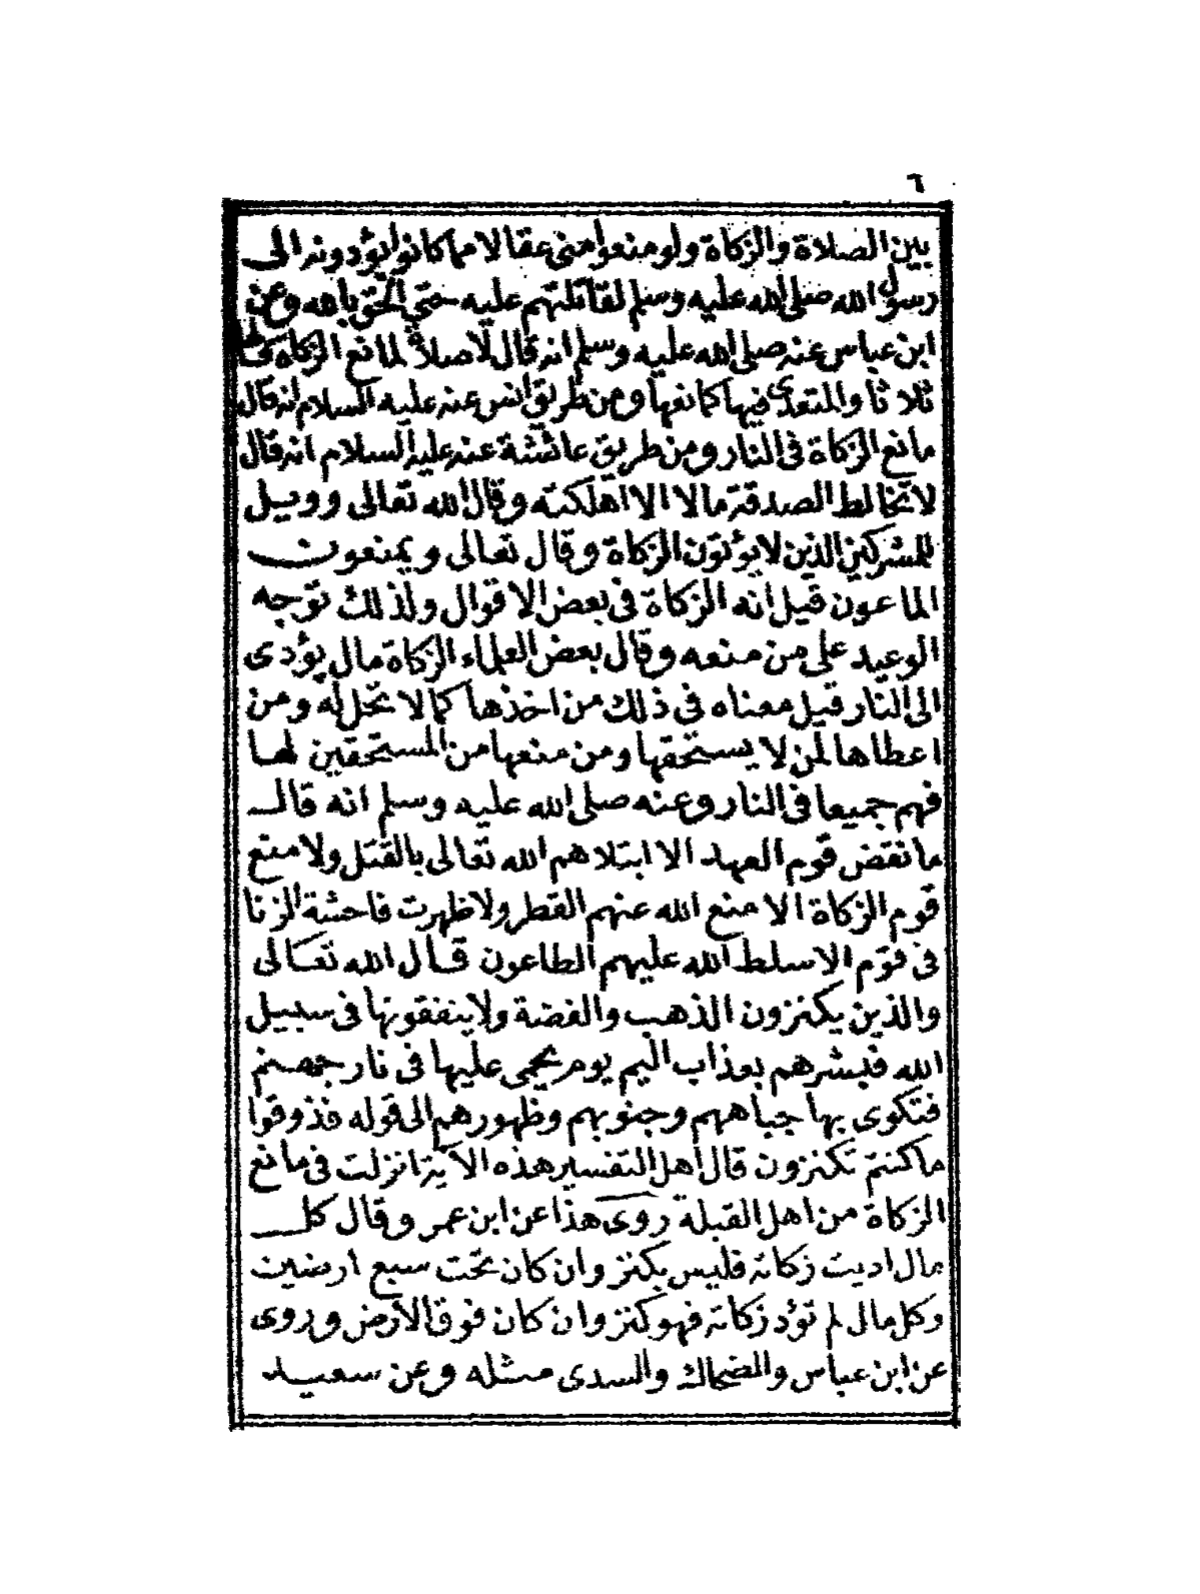 ٦
بين الصلاة والزكاة ولو منعوا مني عقالا مما كانوا يؤدونه الى
رسول الله صلى الله عليه وسلم لقاتلتهم عليه حتى الحق بالله وعن
ابن عباس عنه صلى الله عليه وسلم انه قال لا صلاة لمانع الزكاة قالها
ثلاثا والمتعدى فيها كمانعها ومن طريق انس عنه عليه السلام انه قال
مانع الزكاة فى النار ومن طريق عائشة عنه عليه السلام انه قال
لا تخالط الصدقة مالا الا اهلكته وقال الله تعالى وويل
للمشركين الذين لا يؤتون الزكاة وقال تعالى ويمنعون
الماعون قيل انه الزكاة فى بعض الاقوال ولذلك توجه
الوعيد على من منعه وقال بعض العلماء الزكاة مال يؤدى
الى النار قيل معناه فى ذلك من اخذها كما لا تحل له ومن
اعطاها لمن لا يستحقها ومن منعها من المستحقين لها
فهم جميعا فى النار وعنه صلى الله عليه وسلم انه قال
ما نقض قوم العهد الا ابتلاهم الله تعالى بالقتل ولا منع
قوم الزكاة الا منع الله عنهم القطر ولا ظهرت فاحشة الزنا
فى قوم الا سلط الله عليهم الطاعون قال الله تعالى
والذين يكنزون الذهب والفضة ولا ينفقونها فى سبيل
الله فبشرهم بعذاب اليم يوم يحمى عليها فى نار جهنم
فتكوى بها جباههم وجنوبهم وظهورهم الى قوله فذوقوا
ما كنتم تكنزون قال اهل التفسير هذه الآية انزلت فى مانع
الزكاة من اهل القبلة روى هذا عن ابن عمر وقال كل
مال اديت زكاته فليس بكنز وان كان تحت سبع ارضين
وكل مال لم تؤد زكاته فهو كنز وان كان فوق الأرض وروى
عن ابن عباس والضحاك والسدى مثله وعن سعيد